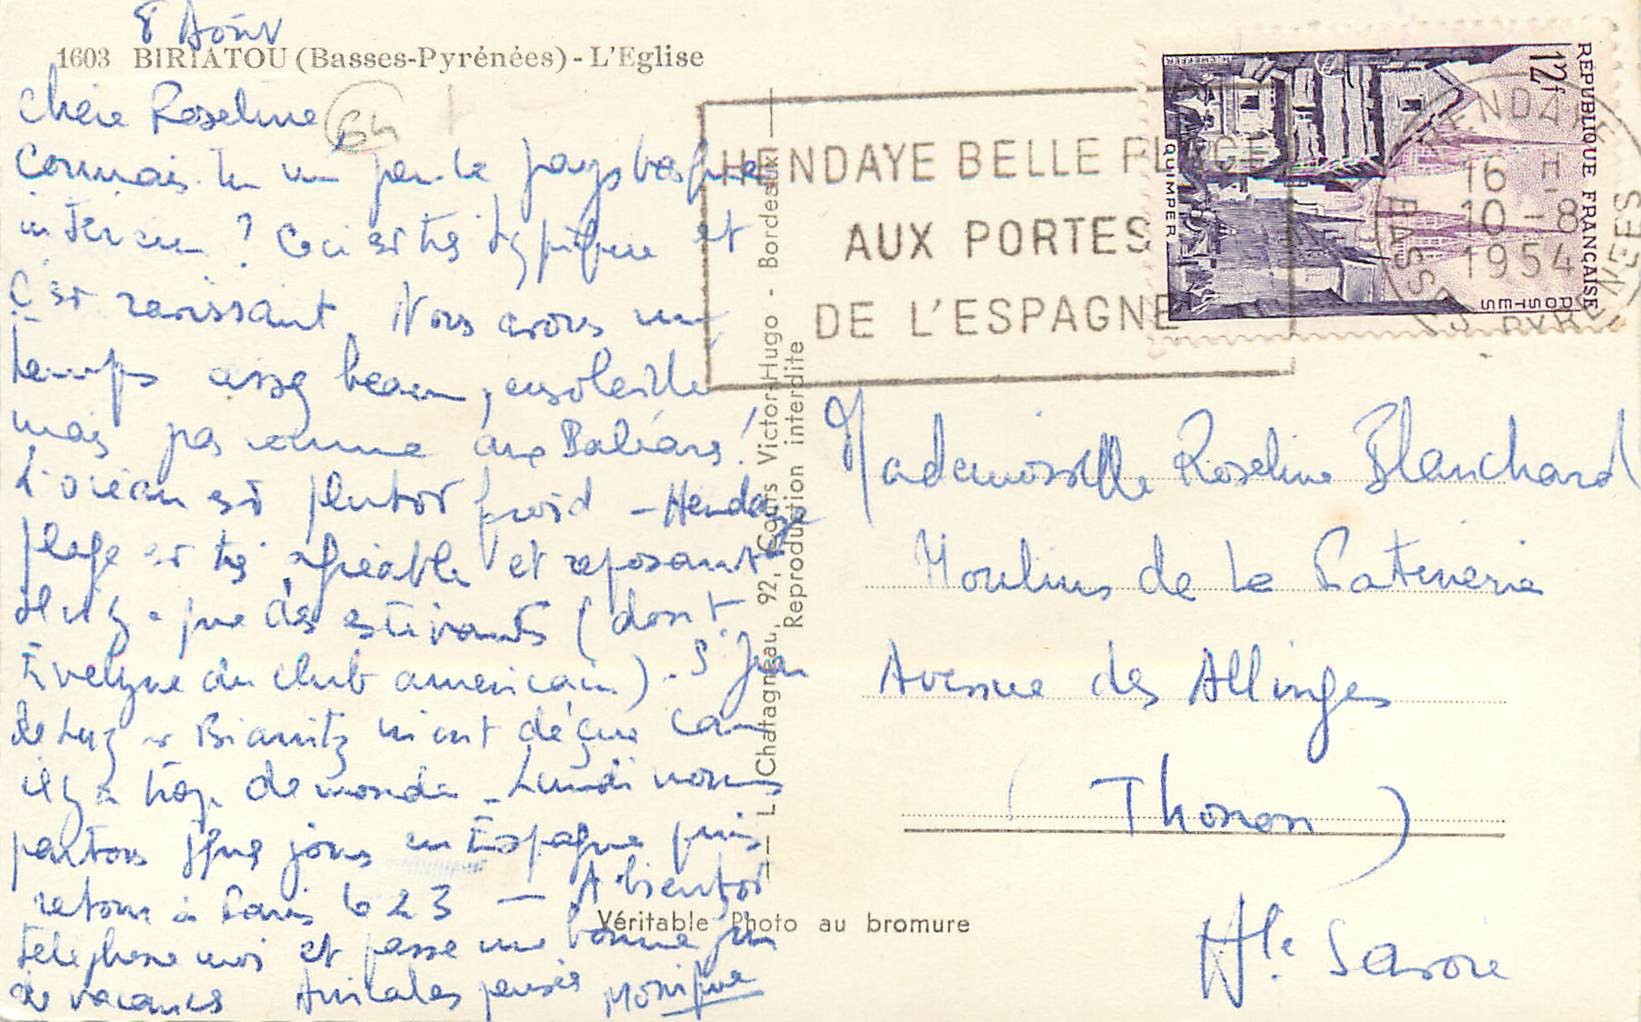 8 Août
1603 BIRIATOU (Basses-Pyrénées) - L'Eglise
Chère Roseline
64
Connais-tu un peu le pays basque
intérieur ? Ceci est très typique et
c'est ravissant. Nous avons un
temps assez beau, ensoleillé
mais pas comme aux Baléares !
L'océan est plutôt froid - Hendaye
plage est très agréable et reposant
Il n'y a que des estivants (dont
Evelyne du club américain). St Jean
de Luz et Biarritz m'ont déçue car
il y a trop de monde - Lundi nous
partons qques jours en Espagne puis
retour à Paris le 23 - A bientôt
téléphone moi et passe une bonne fin
de vacances Amicales pensées Monique
L. Chatagneau, 92, Cours Victor-Hugo - Bordeaux
Reproduction interdite
Véritable Photo au bromure
HENDAYE BELLE PLAGE
AUX PORTES
DE L'ESPAGNE
REPUBLIQUE FRANÇAISE
POSTES
12f
QUIMPER
HENDAYE
16 H
10-8
1954
BASSES PYRENEES
Mademoiselle Roseline Blanchard
Moulins de la
Avenue des Allinges
(Thonon)
Hte Savoie